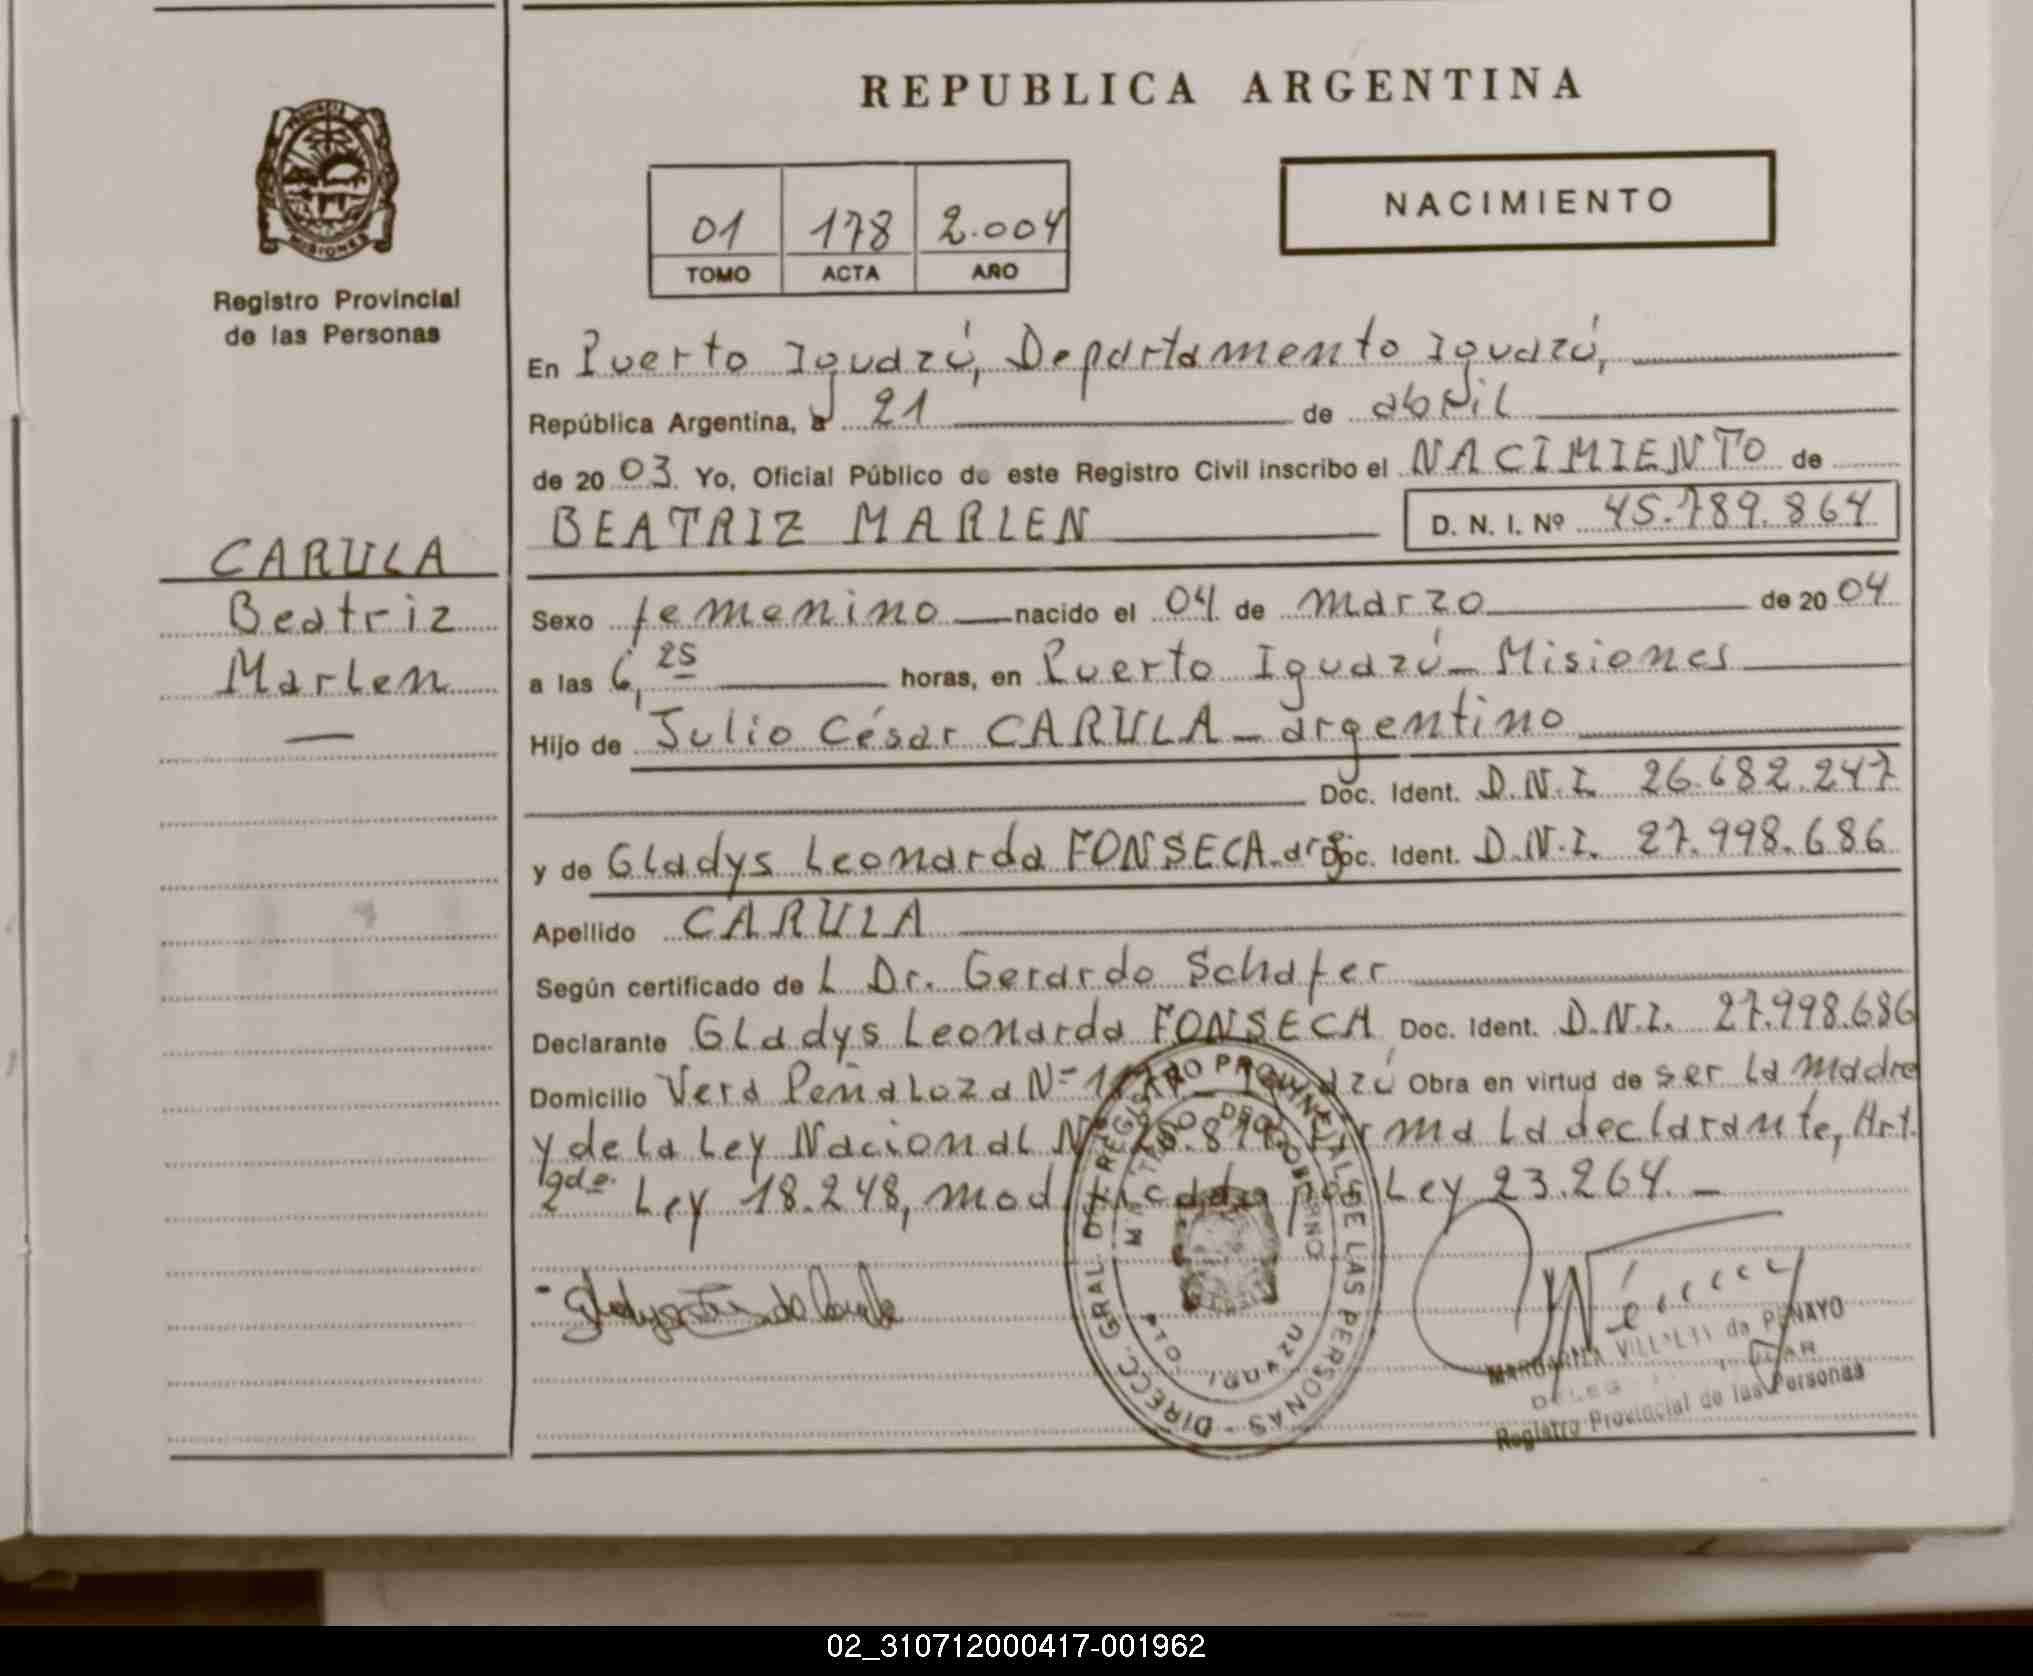 REPUBLICA ARGENTINA
PROVINCIA DE
MISIONES
Registro Provincial
de las Personas
01 178 2.004
TOMO ACTA AÑO
NACIMIENTO
En Puerto Iguazú, Departamento Iguazú,
República Argentina, a 21 de abril
de 2003. Yo, Oficial Público de este Registro Civil inscribo el NACIMIENTO de
BEATRIZ MARLEN D. N. I. Nº 45.789.864
CARULA
Beatriz
Marlen
Sexo femenino nacido el 04 de marzo de 2004
a las 6,25 horas, en Puerto Iguazú - Misiones
Hijo de Julio César CARULA - argentino
Doc. Ident. D.N.I. 26.682.247
y de Gladys Leonarda FONSECA - arg. Doc. Ident. D.N.I. 27.998.686
Apellido CARULA
Según certificado de L Dr. Gerardo Schafer
Declarante Gladys Leonarda FONSECA Doc. Ident. D.N.I. 27.998.686
Domicilio Vera Peñaloza Nº Iguazú Obra en virtud de ser la madre
y de la Ley Nacional Nº 25.819. Firma la declarante, Art.
2do. Ley 18.248, modificado por Ley 23.264. -
DIRECC. GRAL. DEL REGISTRO PROVINCIAL DE LAS PERSONAS -
MARGARITA VILLALTA de PENAYO
Registro Provincial de las Personas
02_310712000417-001962